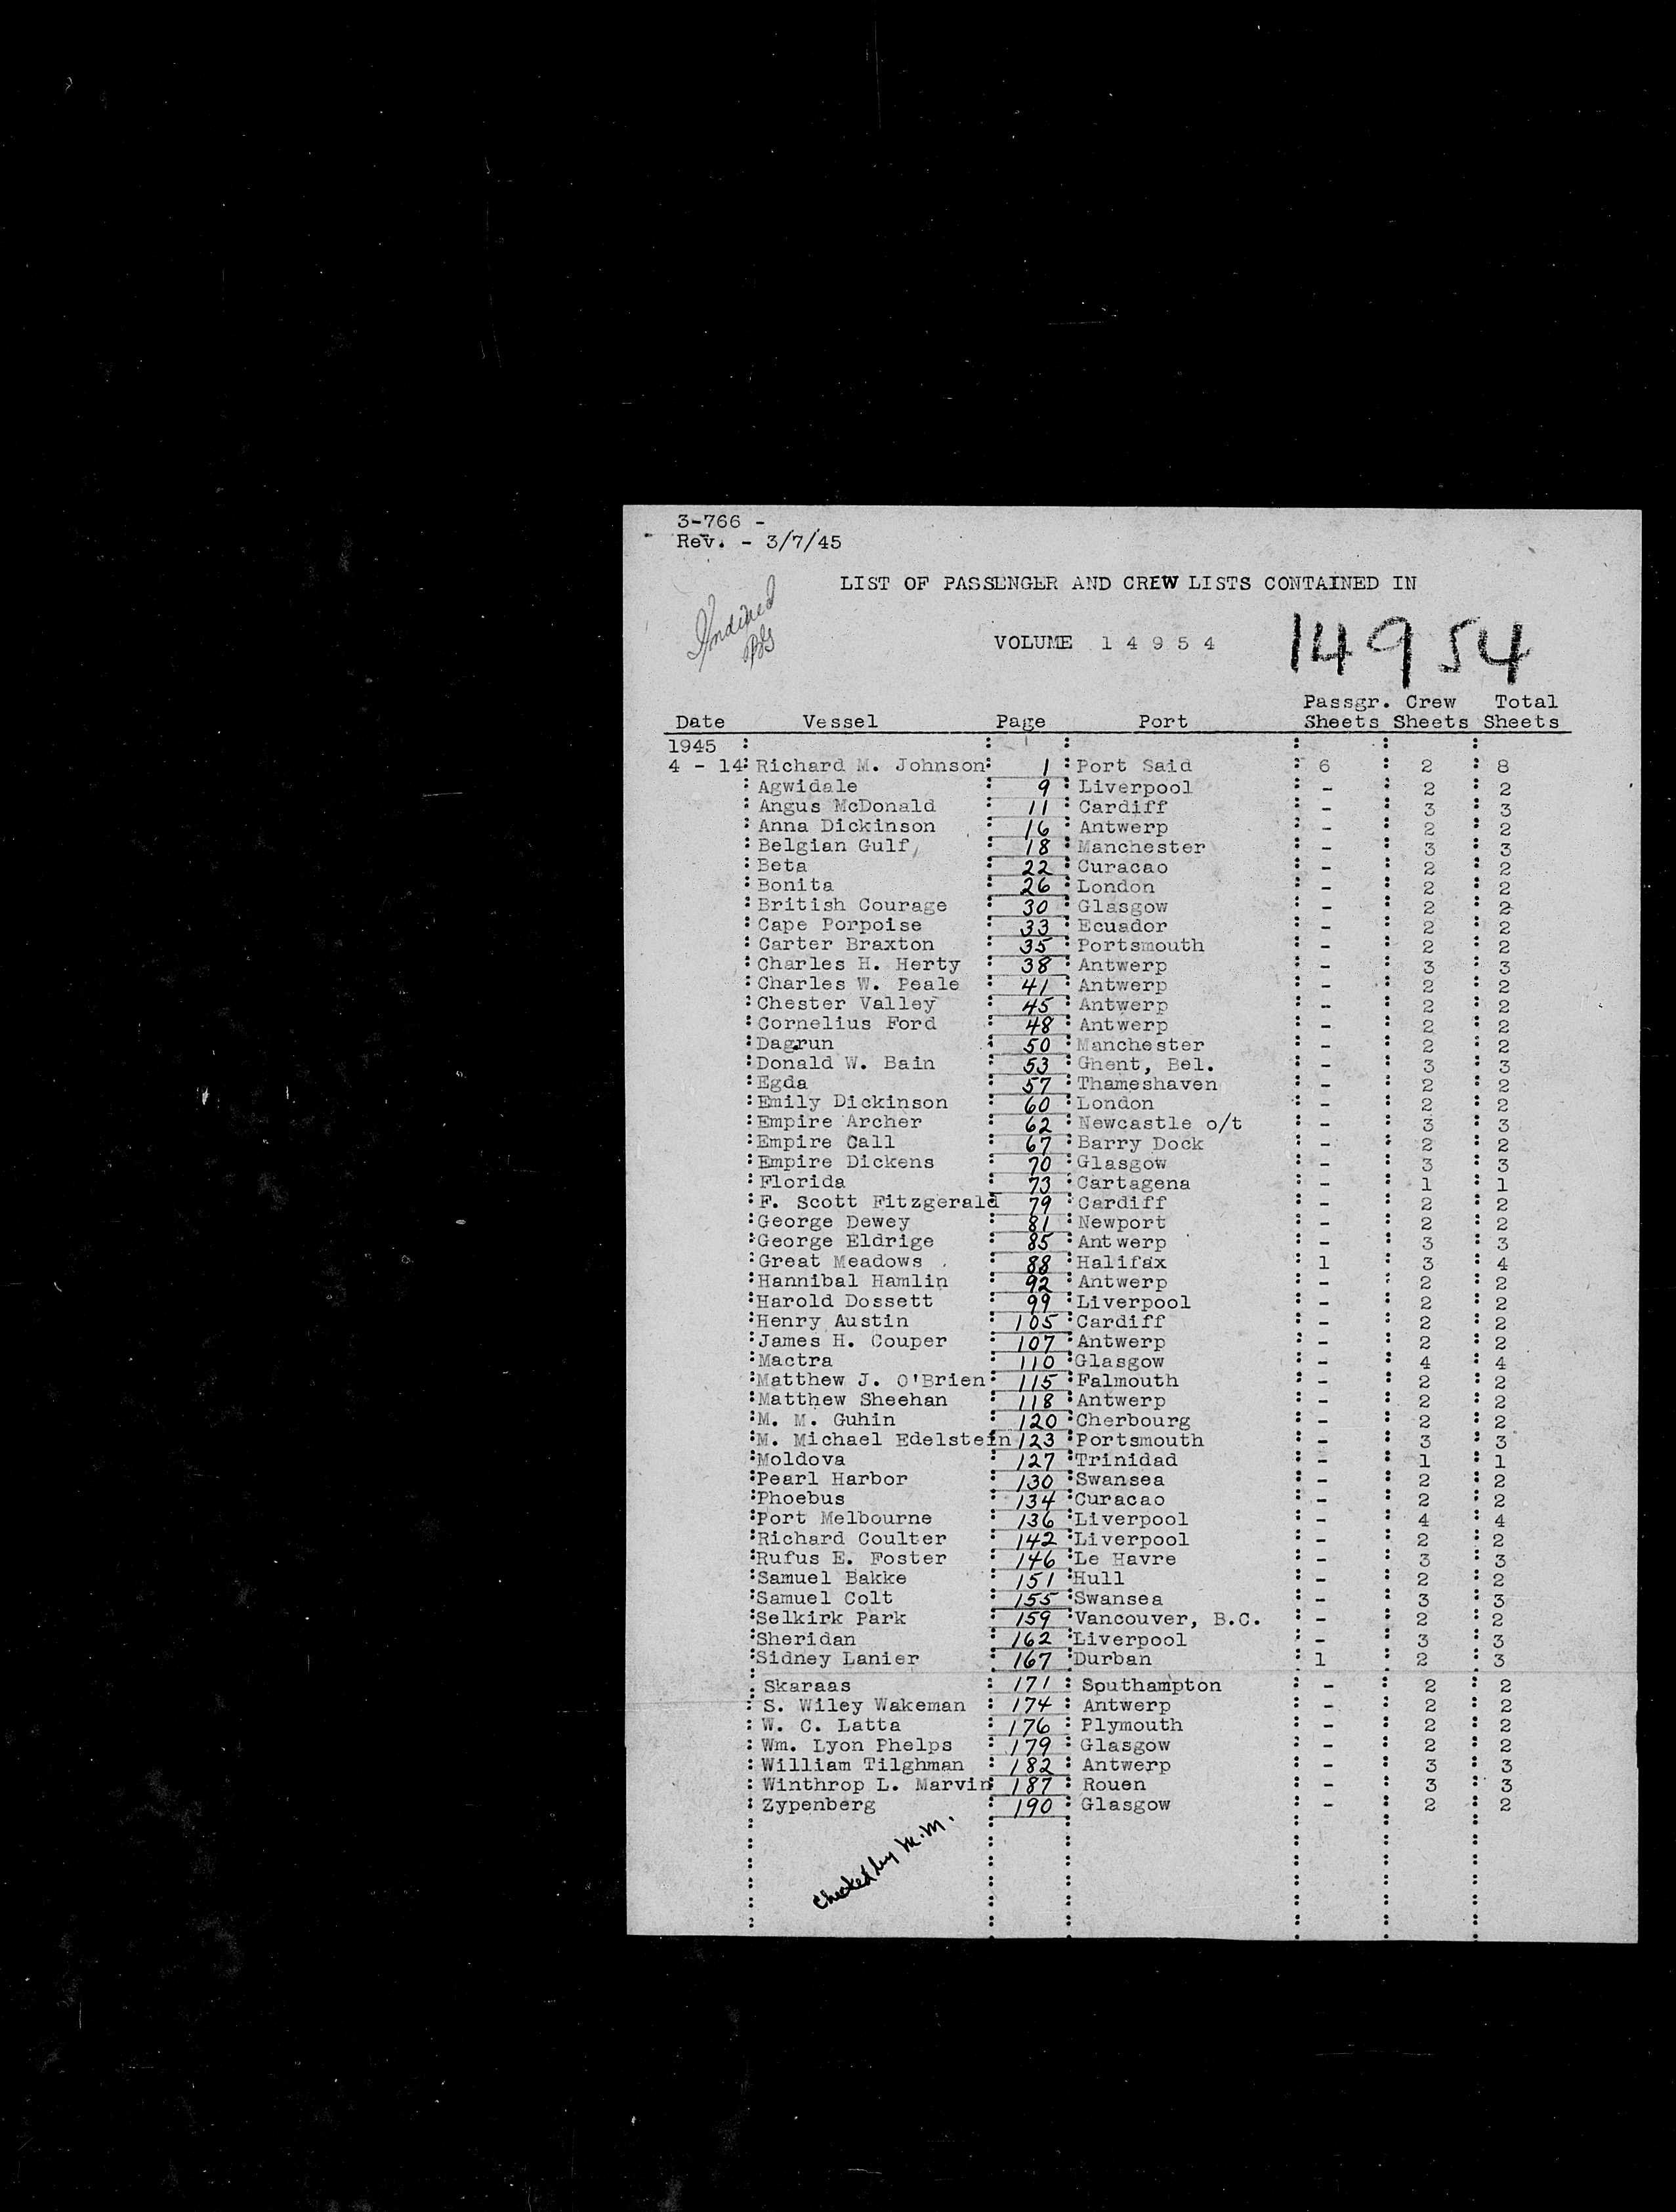 3-766 -
Rev. - 3/7/45
LIST OF PASSENGER AND CREW LISTS CONTAINED IN
Indexed
VOLUME 1 4 9 5 4 14954
Passgr. Crew Total
Date Vessel Page Port Sheets Sheets Sheets
1945
4 - 14 Richard M. Johnson 1 Port Said 6 2 8
Agwidale 9 Liverpool - 2 2
Angus McDonald 11 Cardiff - 3 3
Anna Dickinson 16 Antwerp - 2 2
Belgian Gulf 18 Manchester - 3 3
Beta 22 Curacao - 2 2
Bonita 26 London - 2 2
British Courage 30 Glasgow - 2 2
Cape Porpoise 33 Ecuador - 2 2
Carter Braxton 35 Portsmouth - 2 2
Charles H. Herty 38 Antwerp - 3 3
Charles W. Peale 41 Antwerp - 2 2
Chester Valley 45 Antwerp - 2 2
Cornelius Ford 48 Antwerp - 2 2
Dagrun 50 Manchester - 2 2
Donald W. Bain 53 Ghent, Bel. - 3 3
Egda 57 Thameshaven - 2 2
Emily Dickinson 60 London - 2 2
Empire Archer 62 Newcastle o/t - 3 3
Empire Call 67 Barry Dock - 2 2
Empire Dickens 70 Glasgow - 3 3
Florida 73 Cartagena - 1 1
F. Scott Fitzgerald 79 Cardiff - 2 2
George Dewey 81 Newport - 2 2
George Eldrige 85 Antwerp - 3 3
Great Meadows 88 Halifax 1 3 4
Hannibal Hamlin 92 Antwerp - 2 2
Harold Dossett 99 Liverpool - 2 2
Henry Austin 105 Cardiff - 2 2
James H. Couper 107 Antwerp - 2 2
Mactra 110 Glasgow - 4 4
Matthew J. O'Brien 115 Falmouth - 2 2
Matthew Sheehan 118 Antwerp - 2 2
M. M. Guhin 120 Cherbourg - 2 2
M. Michael Edelstein 123 Portsmouth - 3 3
Moldova 127 Trinidad - 1 1
Pearl Harbor 130 Swansea - 2 2
Phoebus 134 Curacao - 2 2
Port Melbourne 136 Liverpool - 4 4
Richard Coulter 142 Liverpool - 2 2
Rufus E. Foster 146 Le Havre - 3 3
Samuel Bakke 151 Hull - 2 2
Samuel Colt 155 Swansea - 3 3
Selkirk Park 159 Vancouver, B.C. - 2 2
Sheridan 162 Liverpool - 3 3
Sidney Lanier 167 Durban 1 2 3
Skaraas 171 Southampton - 2 2
S. Wiley Wakeman 174 Antwerp - 2 2
W. C. Latta 176 Plymouth - 2 2
Wm. Lyon Phelps 179 Glasgow - 2 2
William Tilghman 182 Antwerp - 3 3
Winthrop L. Marvin 187 Rouen - 3 3
Zypenberg 190 Glasgow - 2 2
Checked by M.M.